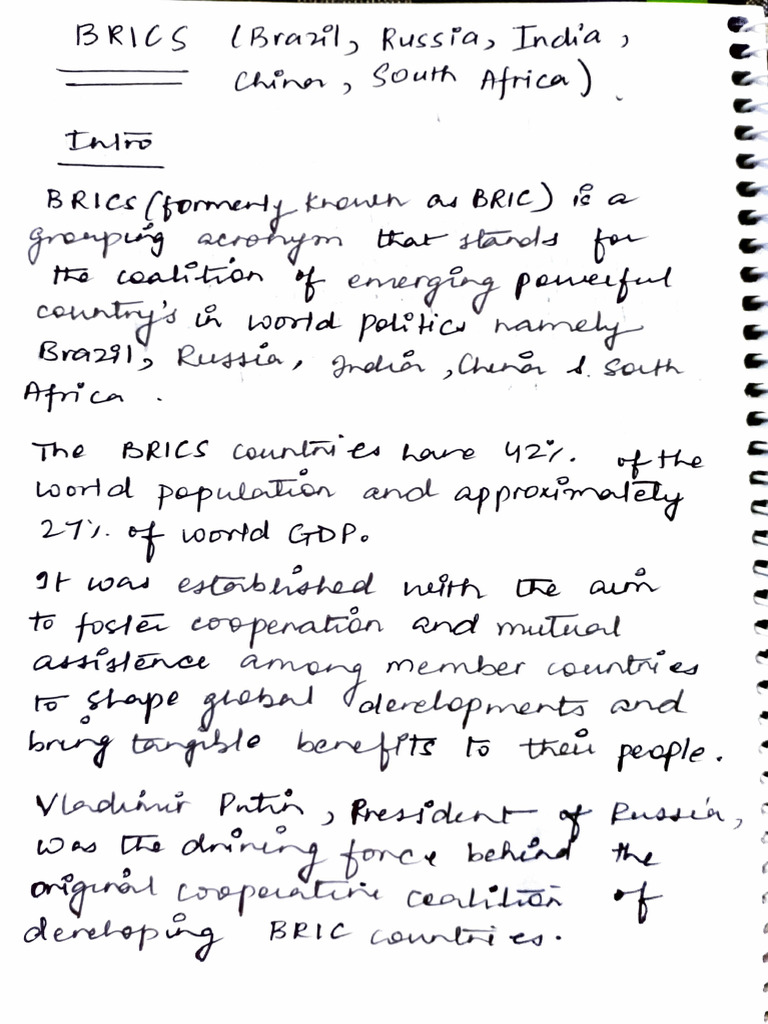 BRICS (Brazil, Russia, India,
China, South Africa).
Intro
BRICS (formerly known as BRIC) is a
grouping acronym that stands for
the coalition of emerging powerful
country's in world politics namely
Brazil, Russia, India, China & South
Africa.
The BRICS countries have 42% of the
world population and approximately
27% of world GDP.
It was established with the aim
to foster cooperation and mutual
assistence among member countries
to shape global developments and
bring tangible benefits to their people.
Vladimir Putin, President of Russia,
was the driving force behind the
original cooperative coalition of
developing BRIC countries.